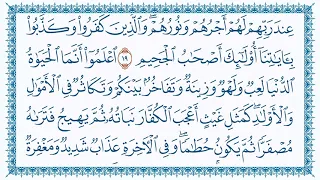 عِندَ رَبِّهِمْ لَهُمْ أَجْرُهُمْ وَنُورُهُمْ ۖ وَالَّذِينَ كَفَرُوا وَكَذَّبُوا
بِـَٔايَـٰتِنَآ أُو۟لَـٰٓئِكَ أَصْحَـٰبُ الْجَحِيمِ ١٩ اعْلَمُوٓا أَنَّمَا الْحَيَوٰةُ
الدُّنْيَا لَعِبٌ وَلَهْوٌ وَزِينَةٌ وَتَفَاخُرٌۢ بَيْنَكُمْ وَتَكَاثُرٌ فِي الْأَمْوَٰلِ
وَالْأَوْلَـٰدِ ۖ كَمَثَلِ غَيْثٍ أَعْجَبَ الْكُفَّارَ نَبَاتُهُۥ ثُمَّ يَهِيجُ فَتَرَىٰهُ
مُصْفَرًّا ثُمَّ يَكُونُ حُطَـٰمًا ۖ وَفِي الْـَٔاخِرَةِ عَذَابٌ شَدِيدٌ وَمَغْفِرَةٌ